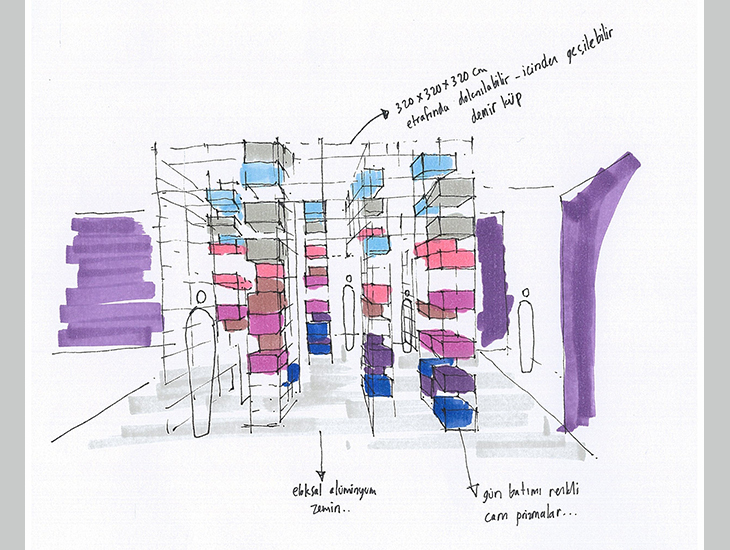 320 x 320 x 320 cm
etrafında dolanılabilir - içinden geçilebilir
demir küp
eloksal alüminyum
zemin..
gün batımı renkli
cam prizmalar...